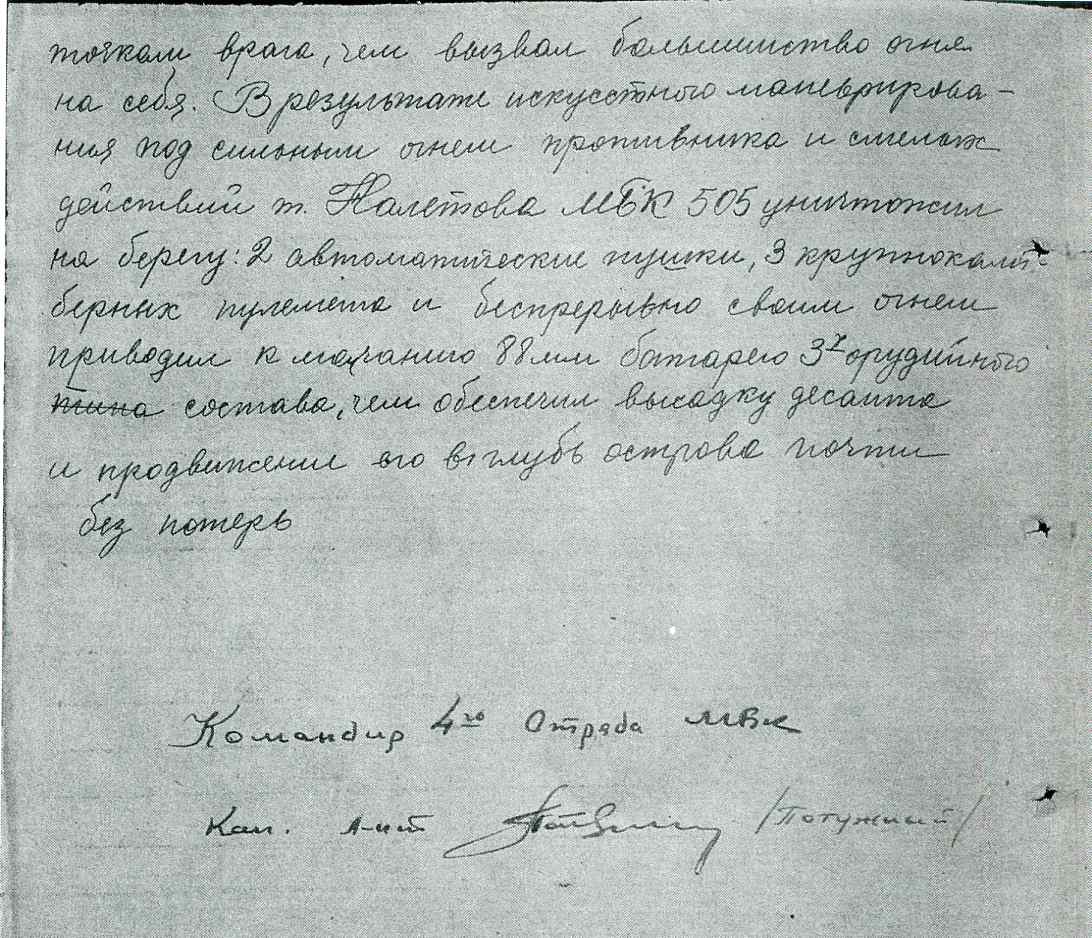 точкам врага, чем вызвал большинство огня
на себя. В результате искусстного маневрирова-
ния под сильным огнем противника и смелых
действий т. Налетова МБК 505 уничтожил
на берегу: 2 автоматические пушки, 3 крупнокали-
берных пулемета и беспрерывно своим огнем
приводил к молчанию 88 мм батарею 3х орудийного
типа состава, чем обеспечил высадку десанта
и продвижение его в глубь острова почти
без потерь
Командир 4го Отряда МБК
Кап. л-нт /Потужний/